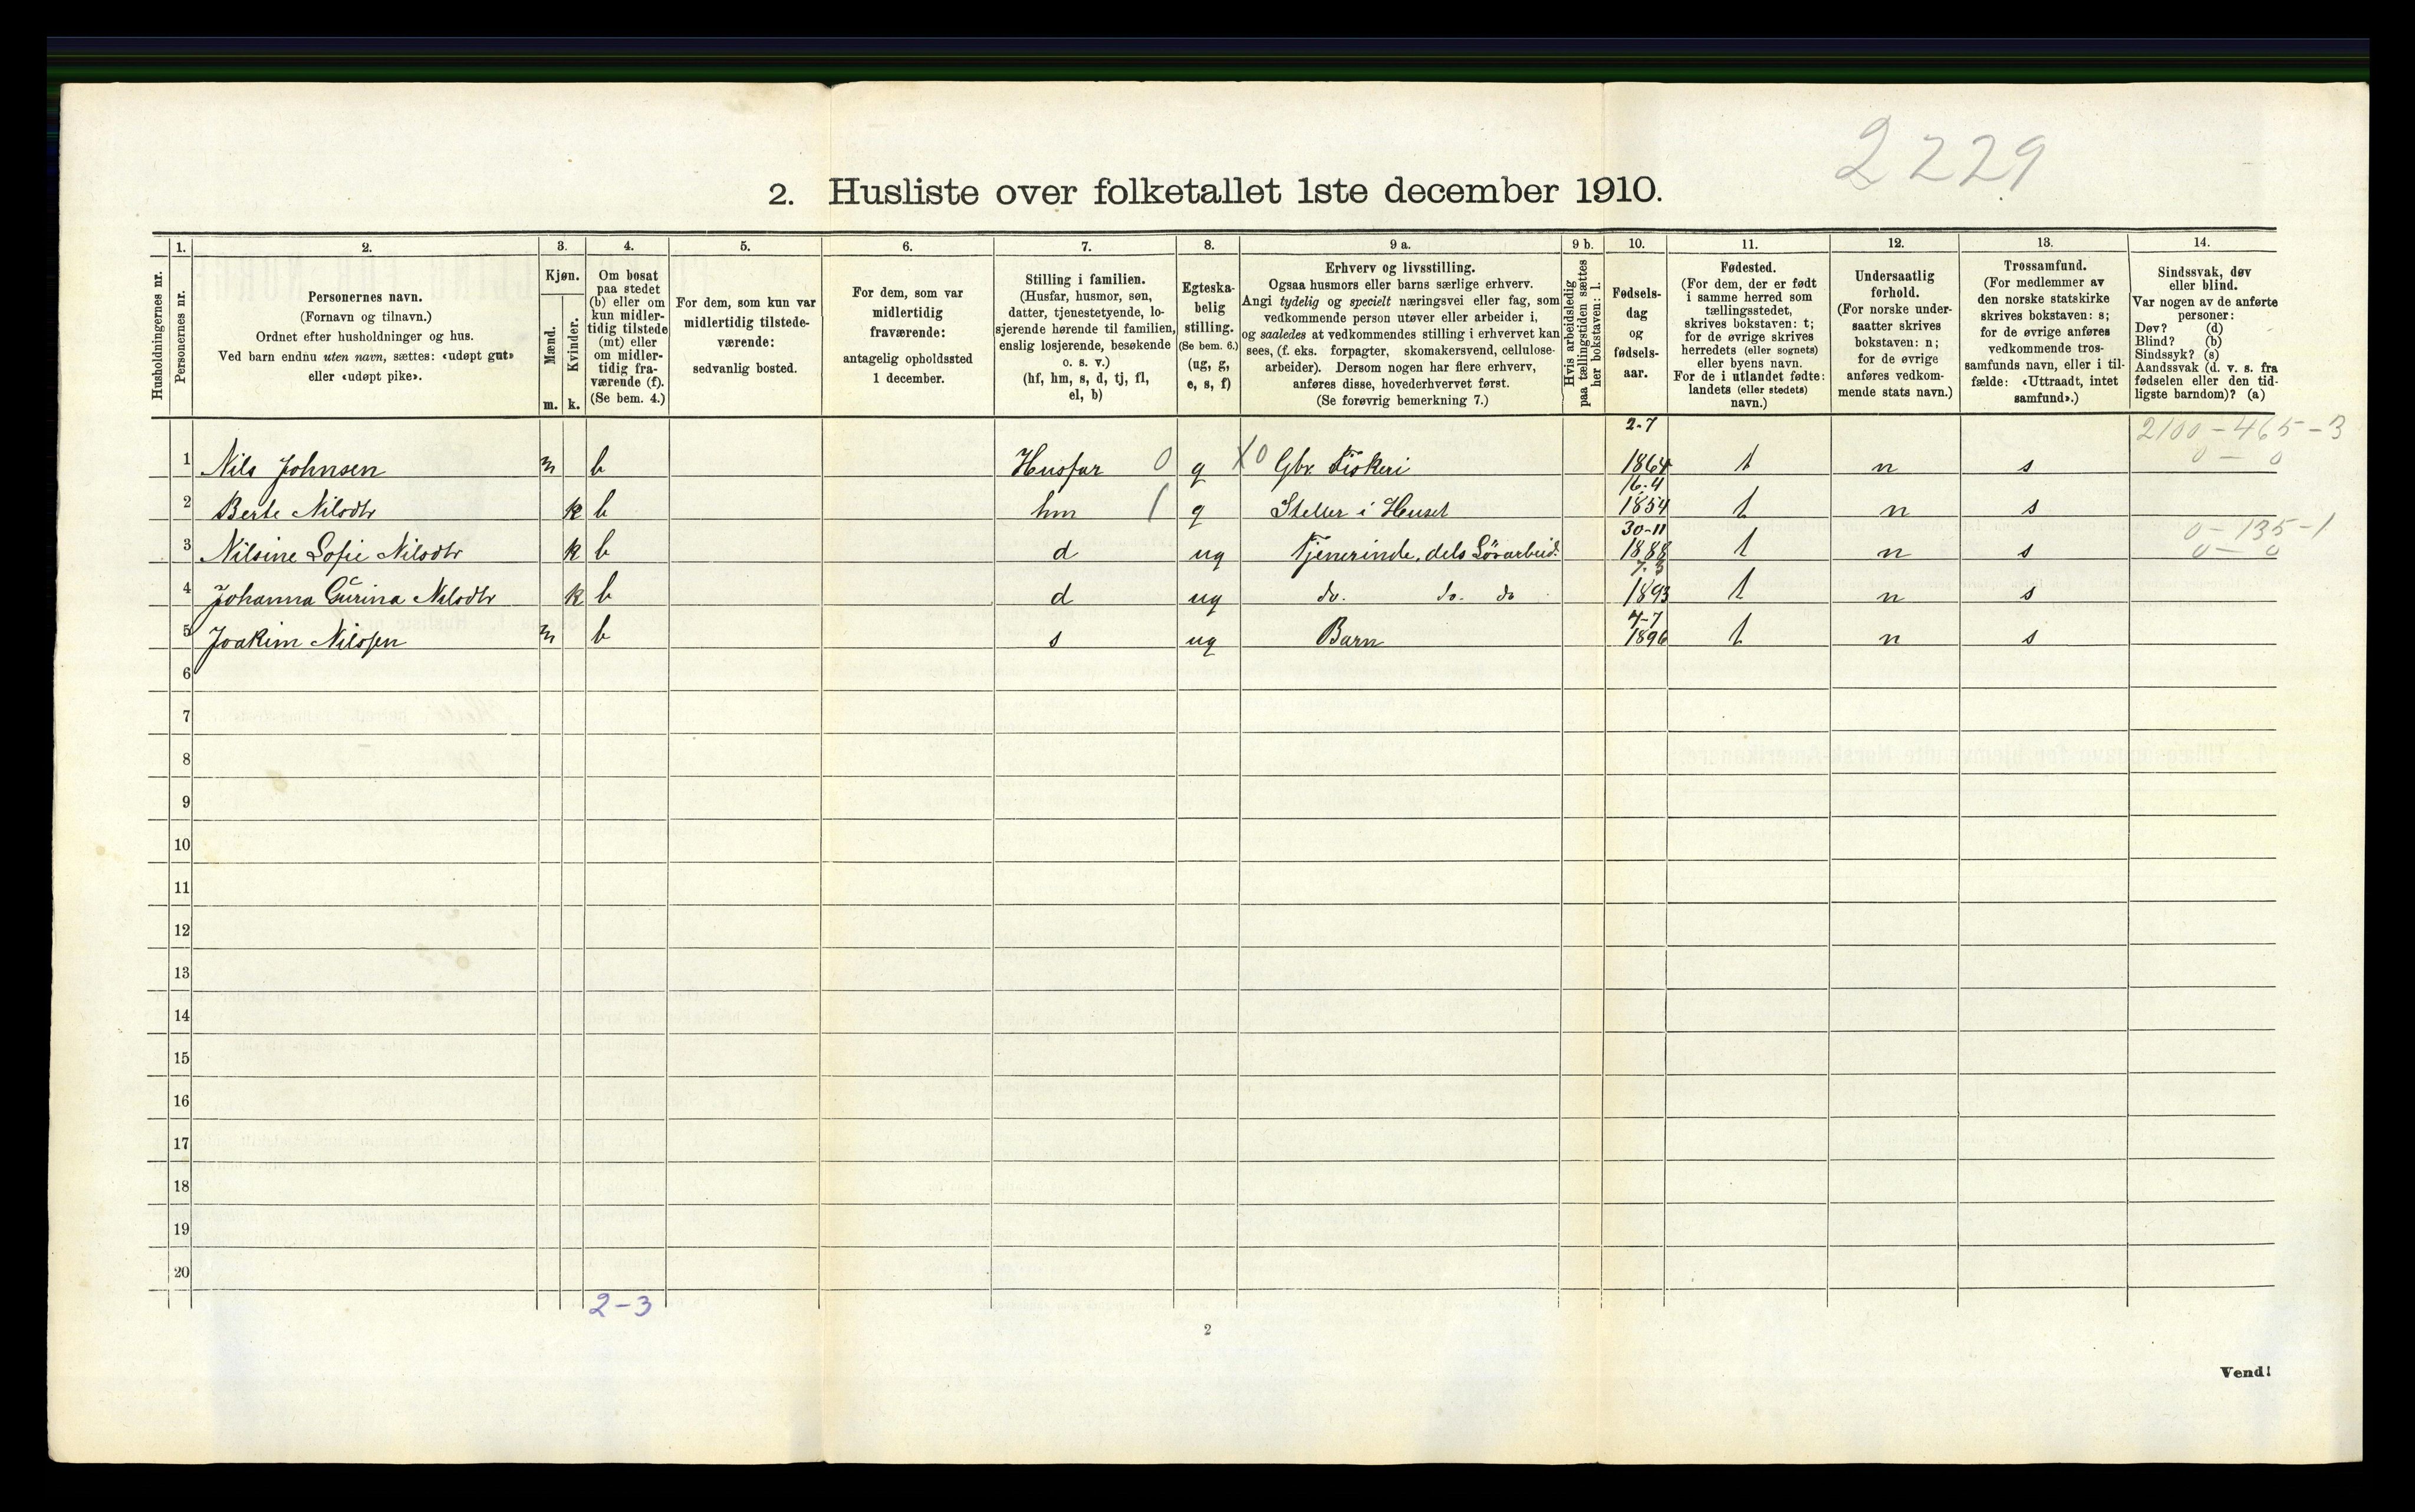 2229
2. Husliste over folketallet 1ste december 1910.
Husholdningernes nr.
1.
Personernes nr.
2.
Personernes navn.
(Fornavn og tilnavn.)
Ordnet efter husholdninger og hus.
Ved barn endnu uten navn, sættes: «udøpt gut»
eller «udøpt pike».
3.
Kjøn.
Mænd.
Kvinder.
m. k.
4.
Om bosat
paa stedet
(b) eller om
kun midler-
tidig tilstede
(mt) eller
om midler-
tidig fra-
værende (f).
(Se bem. 4.)
5.
For dem, som kun var
midlertidig tilstede-
værende:
sedvanlig bosted.
6.
For dem, som var
midlertidig
fraværende:
antagelig opholdssted
1 december.
7.
Stilling i familien.
(Husfar, husmor, søn,
datter, tjenestetyende, lo-
sjerende hørende til familien,
enslig losjerende, besøkende
o. s. v.)
(hf, hm, s, d, tj, fl,
el, b)
8.
Egteska-
belig
stilling.
(Se bem. 6.)
(ug, g,
e, s, f)
9 a.
Erhverv og livsstilling.
Ogsaa husmors eller barns særlige erhverv.
Angi tydelig og specielt næringsvei eller fag, som
vedkommende person utøver eller arbeider i,
og saaledes at vedkommendes stilling i erhvervet kan
sees, (f. eks. forpagter, skomakersvend, cellulose-
arbeider). Dersom nogen har flere erhverv,
anføres disse, hovederhvervet først.
(Se forøvrig bemerkning 7.)
9 b.
Hvis arbeidsledig
paa tællingstiden sættes
her bokstaven: l.
10.
Fødsels-
dag
og
fødsels-
aar.
11.
Fødested.
(For dem, der er født
i samme herred som
tællingsstedet,
skrives bokstaven: t;
for de øvrige skrives
herredets (eller sognets)
eller byens navn.
For de i utlandet fødte:
landets (eller stedets)
navn.)
12.
Undersaatlig
forhold.
(For norske under-
saatter skrives
bokstaven: n;
for de øvrige
anføres vedkom-
mende stats navn.)
13.
Trossamfund.
(For medlemmer av
den norske statskirke
skrives bokstaven: s;
for de øvrige anføres
vedkommende tros-
samfunds navn, eller i til-
fælde: «Uttraadt, intet
samfund».)
14.
Sindssvak, døv
eller blind.
Var nogen av de anførte
personer:
Døv? (d)
Blind? (b)
Sindssyk? (s)
Aandssvak (d. v. s. fra
fødselen eller den tid-
ligste barndom)? (a)
2100-465-3
0 - 0
1 Nils Johnsen m b Husfar 0 g X0 Gbr. Fiskeri 2-7 1864 t n s
2 Berte Nilsdtr k b hm 1 g Steller i Huset 16-4 1854 t n s
0-135-1
0 - 0
3 Nilsine Sofie Nilsdtr k b d ug Tjenerinde, dels 30-11 1888 t n s
4 Johanna Gurina Nilsdtr k b d ug do. do. do 7-3 1893 t n s
5 Joakim Nilssen m b s ug Barn 7-7 1896 t n s
6
7
8
9
10
11
12
13
14
15
16
17
18
19
20
2-3
2
Vend!